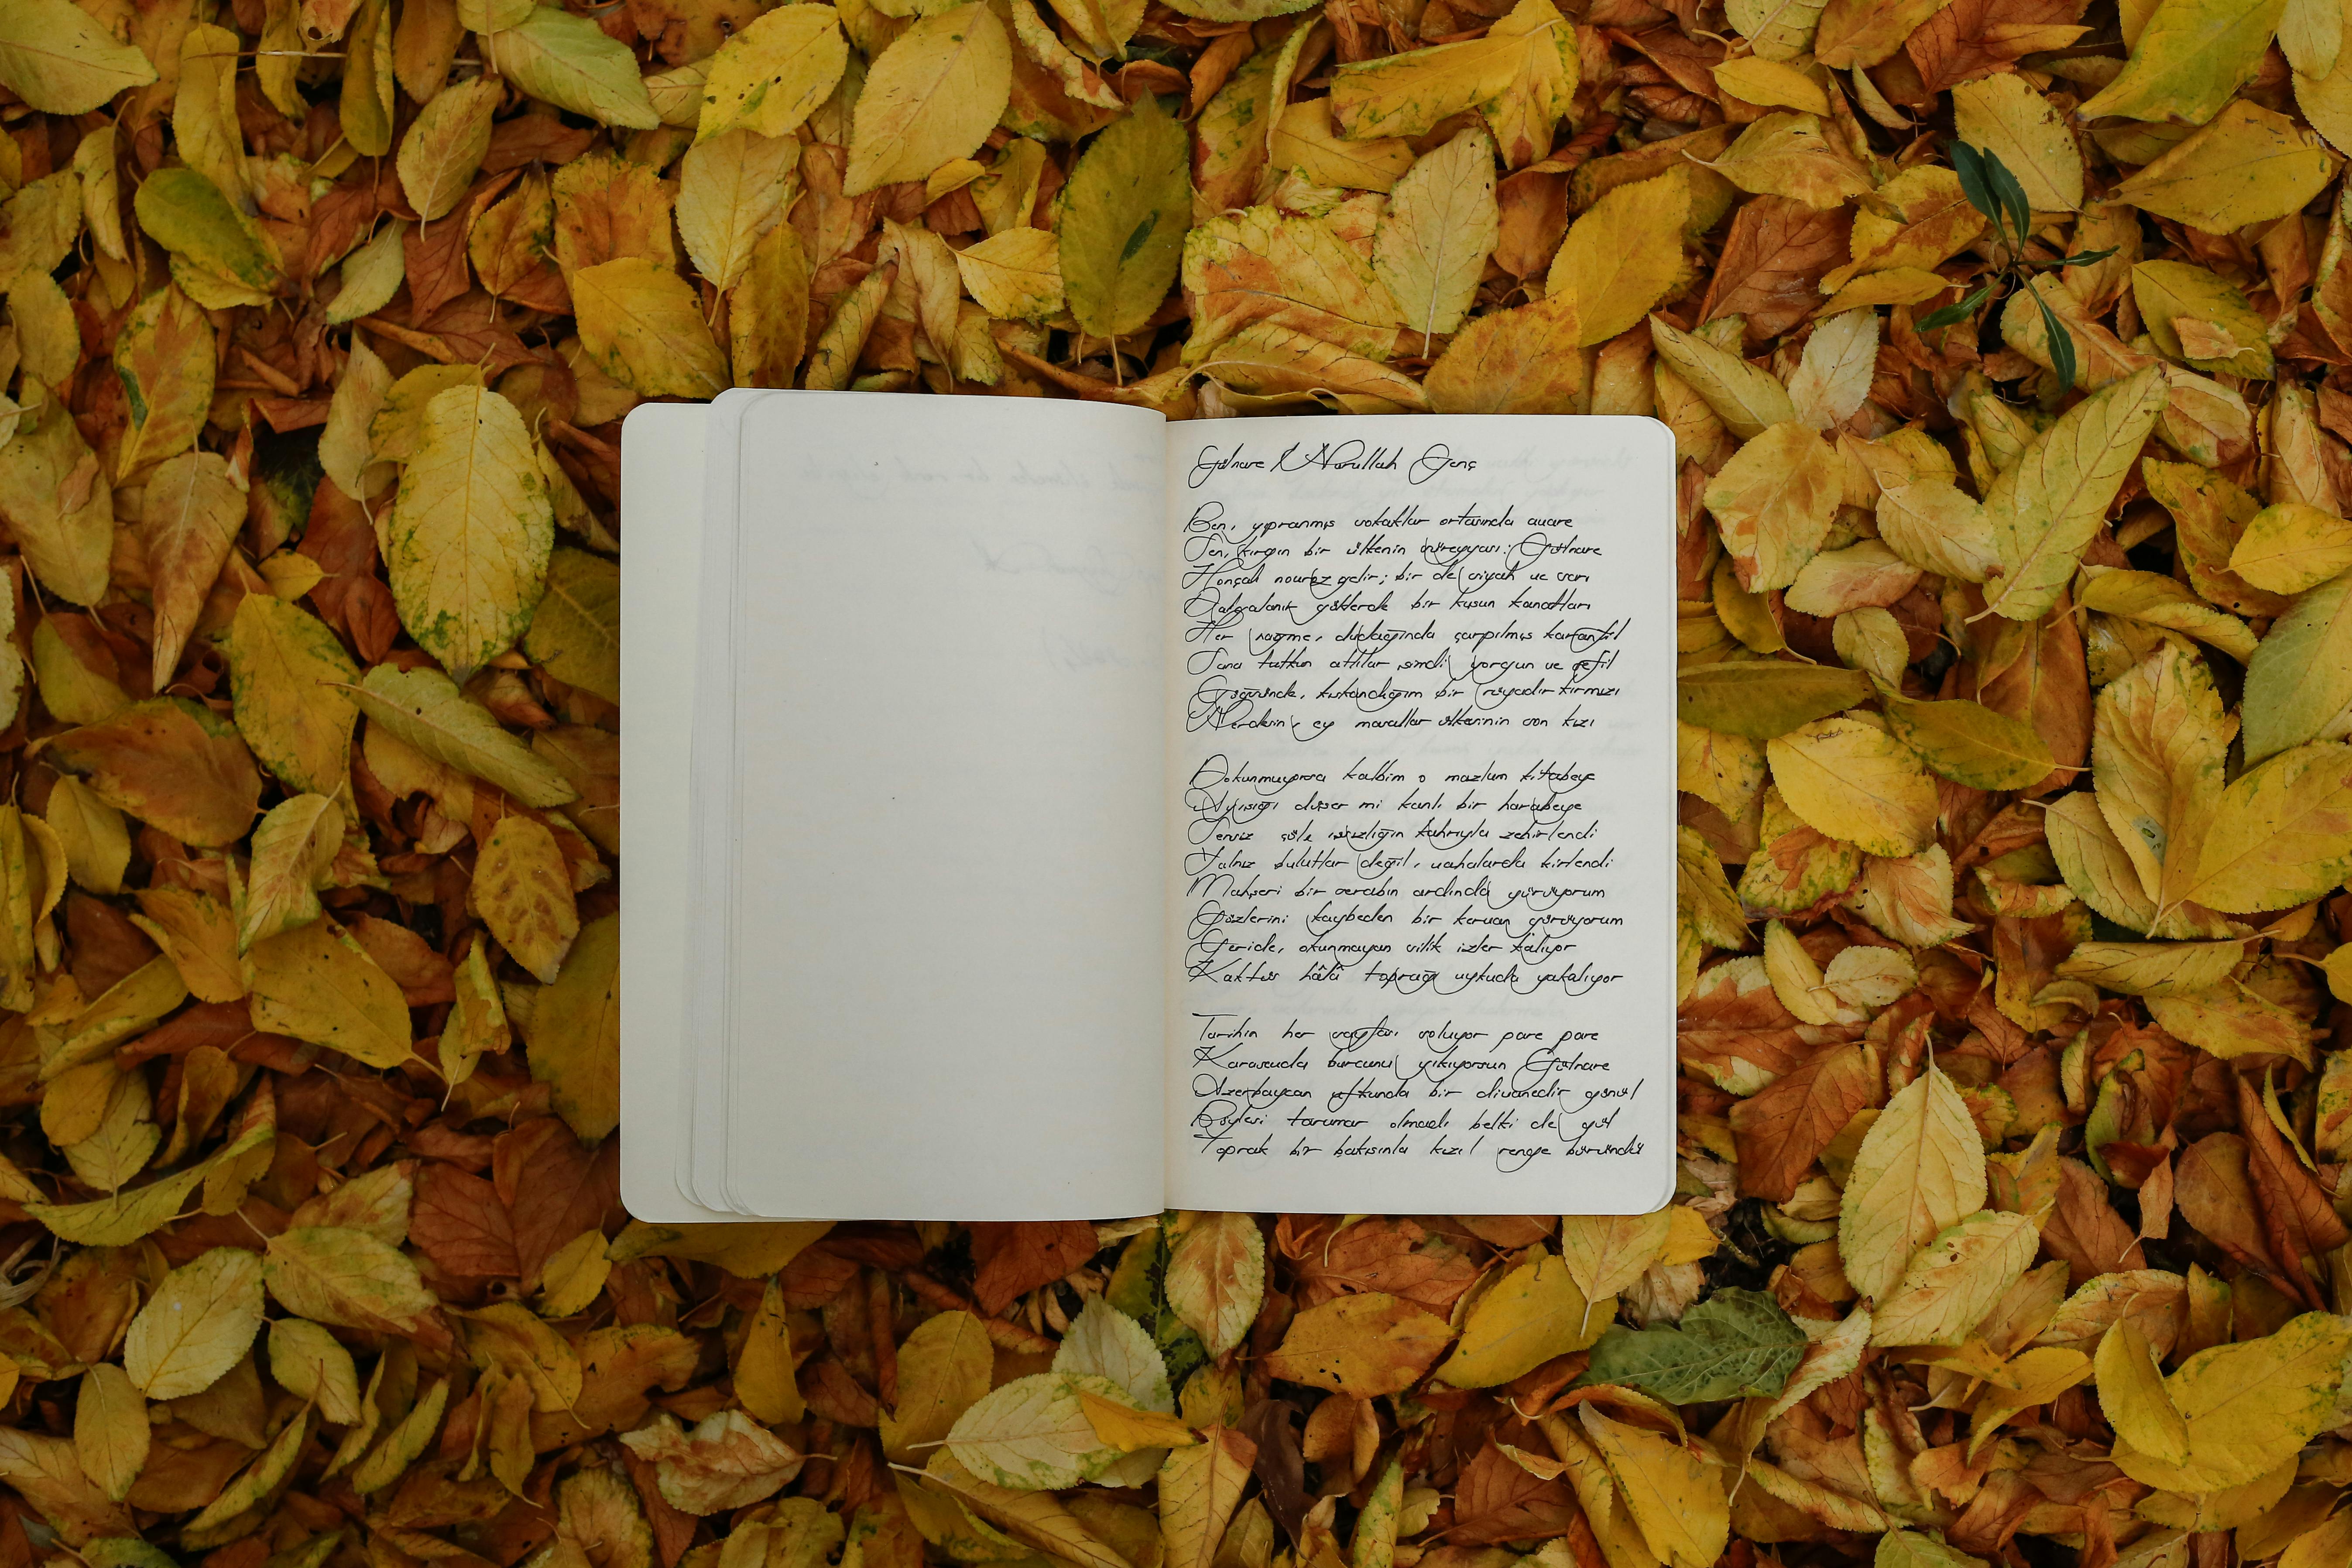 Gülnare / Nurullah Genç
Ben, yıpranmış sokaklar ortasında avare
Sen, kırgın bir ülkenin süreyyası: Gülnare
Honçalı novruz gelir; bir de siyah ve sarı
Dalgalanır göklerde bir kuşun kanatları
Her nağme, dudağında çarpılmış karanfil
Sana tutkun atlılar şimdi yorgun ve sefil
Göğsünde, kıskandığım bir rüyadır kırmızı
Nerdesin, ey masallar ülkesinin son kızı
Dokunmuyorsa kalbim o mazlum kitabeye
Ayışığı düşer mi kanlı bir harabeye
Sensiz çöle ıssızlığın kahrıyla zehirlendi
Yalnız bulutlar değil, vahalarda kirlendi
Mahşeri bir serabın ardında yürüyorum
Gözlerini kaybeden bir kervan görüyorum
Geride, okunmayan silik izler kalıyor
Kaktüs hâlâ toprağı uykuda yakalıyor
Tarihin her sayfası soluyor pare pare
Karasevda burcunu yıkıyorsun Gülnare
Azerbaycan ufkunda bir divanedir gönül
Böylesi tarumar olmadı belki de gül
Toprak bir bakışınla kızıl renge büründü